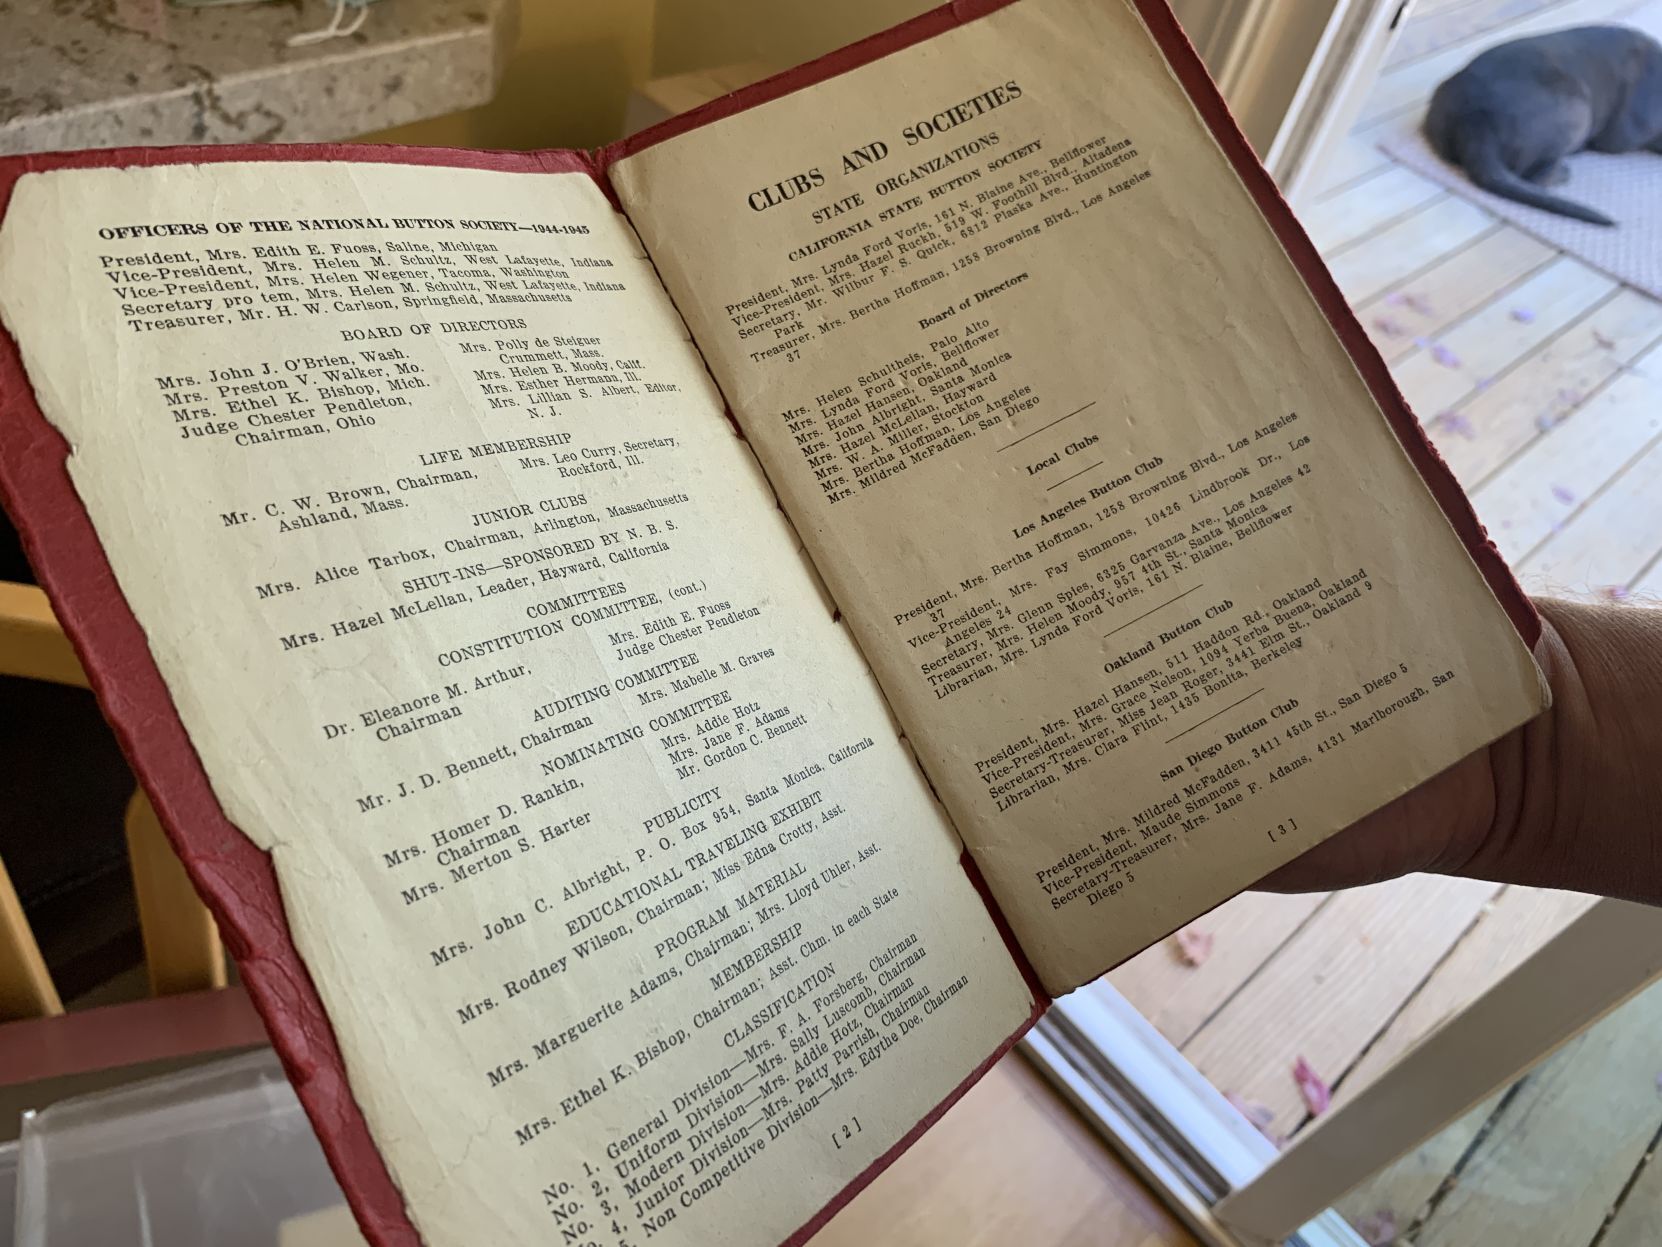 OFFICERS OF THE NATIONAL BUTTON SOCIETY—1944-1945
President, Mrs. Edith E. Fuoss, Saline, Michigan
Vice-President, Mrs. Helen M. Schultz, West Lafayette, Indiana
Vice-President, Mrs. Helen Wegener, Tacoma, Washington
Secretary pro tem, Mrs. Helen M. Schultz, West Lafayette, Indiana
Treasurer, Mr. H. W. Carlson, Springfield, Massachusetts
BOARD OF DIRECTORS
Mrs. John J. O'Brien, Wash.
Mrs. Preston V. Walker, Mo.
Mrs. Ethel K. Bishop, Mich.
Judge Chester Pendleton,
Chairman, Ohio
Mrs. Polly de Steiguer
Crummett, Mass.
Mrs. Helen B. Moody, Calif.
Mrs. Esther Hermann, Ill.
Mrs. Lillian S. Albert, Editor,
N. J.
LIFE MEMBERSHIP
Mr. C. W. Brown, Chairman,
Ashland, Mass.
Mrs. Leo Curry, Secretary,
Rockford, Ill.
JUNIOR CLUBS
Mrs. Alice Tarbox, Chairman, Arlington, Massachusetts
SHUT-INS—SPONSORED BY N. B. S.
Mrs. Hazel McLellan, Leader, Hayward, California
COMMITTEES
CONSTITUTION COMMITTEE, (cont.)
Dr. Eleanore M. Arthur,
Chairman
Mrs. Edith E. Fuoss
Judge Chester Pendleton
AUDITING COMMITTEE
Mr. J. D. Bennett, Chairman Mrs. Mabelle M. Graves
NOMINATING COMMITTEE
Mrs. Homer D. Rankin,
Chairman
Mrs. Merton S. Harter
Mrs. Addie Hotz
Mrs. Jane F. Adams
Mr. Gordon C. Bennett
PUBLICITY
Mrs. John C. Albright, P. O. Box 954, Santa Monica, California
EDUCATIONAL TRAVELING EXHIBIT
Mrs. Rodney Wilson, Chairman; Miss Edna Crotty, Asst.
PROGRAM MATERIAL
Mrs. Marguerite Adams, Chairman; Mrs. Lloyd Uhler, Asst.
MEMBERSHIP
Mrs. Ethel K. Bishop, Chairman; Asst. Chm. in each State
CLASSIFICATION
No. 1, General Division—Mrs. F. A. Forsberg, Chairman
No. 2, Uniform Division—Mrs. Sally Luscomb, Chairman
No. 3, Modern Division—Mrs. Addie Hotz, Chairman
No. 4, Junior Division—Mrs. Patty Parrish, Chairman
5, Non Competitive Division—Mrs. Edythe Doe, Chairman
[ 2 ]
CLUBS AND SOCIETIES
STATE ORGANIZATIONS
CALIFORNIA STATE BUTTON SOCIETY
President, Mrs. Lynda Ford Voris, 161 N. Blaine Ave., Bellflower
Vice-President, Mrs. Hazel Ruckh, 519 W. Foothill Blvd., Altadena
Secretary, Mr. Wilbur F. S. Quick, 6812 Plaska Ave., Huntington
Park
Treasurer, Mrs. Bertha Hoffman, 1258 Browning Blvd., Los Angeles
37
Board of Directors
Mrs. Helen Schultheis, Palo Alto
Mrs. Lynda Ford Voris, Bellflower
Mrs. Hazel Hansen, Oakland
Mrs. John Albright, Santa Monica
Mrs. Hazel McLellan, Hayward
Mrs. W. A. Miller, Stockton
Mrs. Bertha Hoffman, Los Angeles
Mrs. Mildred McFadden, San Diego
Local Clubs
Los Angeles Button Club
President, Mrs. Bertha Hoffman, 1258 Browning Blvd., Los Angeles
37
Vice-President, Mrs. Fay Simmons, 10426 Lindbrook Dr., Los
Angeles 24
Secretary, Mrs. Glenn Spies, 6325 Garvanza Ave., Los Angeles 42
Treasurer, Mrs. Helen Moody, 957 4th St., Santa Monica
Librarian, Mrs. Lynda Ford Voris, 161 N. Blaine, Bellflower
Oakland Button Club
President, Mrs. Hazel Hansen, 511 Haddon Rd., Oakland
Vice-President, Mrs. Grace Nelson, 1094 Yerba Buena, Oakland
Secretary-Treasurer, Miss Jean Roger, 3441 Elm St., Oakland 9
Librarian, Mrs. Clara Flint, 1435 Bonita, Berkeley
San Diego Button Club
President, Mrs. Mildred McFadden, 3411 45th St., San Diego 5
Vice-President, Maude Simmons
Secretary-Treasurer, Mrs. Jane F. Adams, 4131 Marlborough, San
Diego 5
[ 3 ]